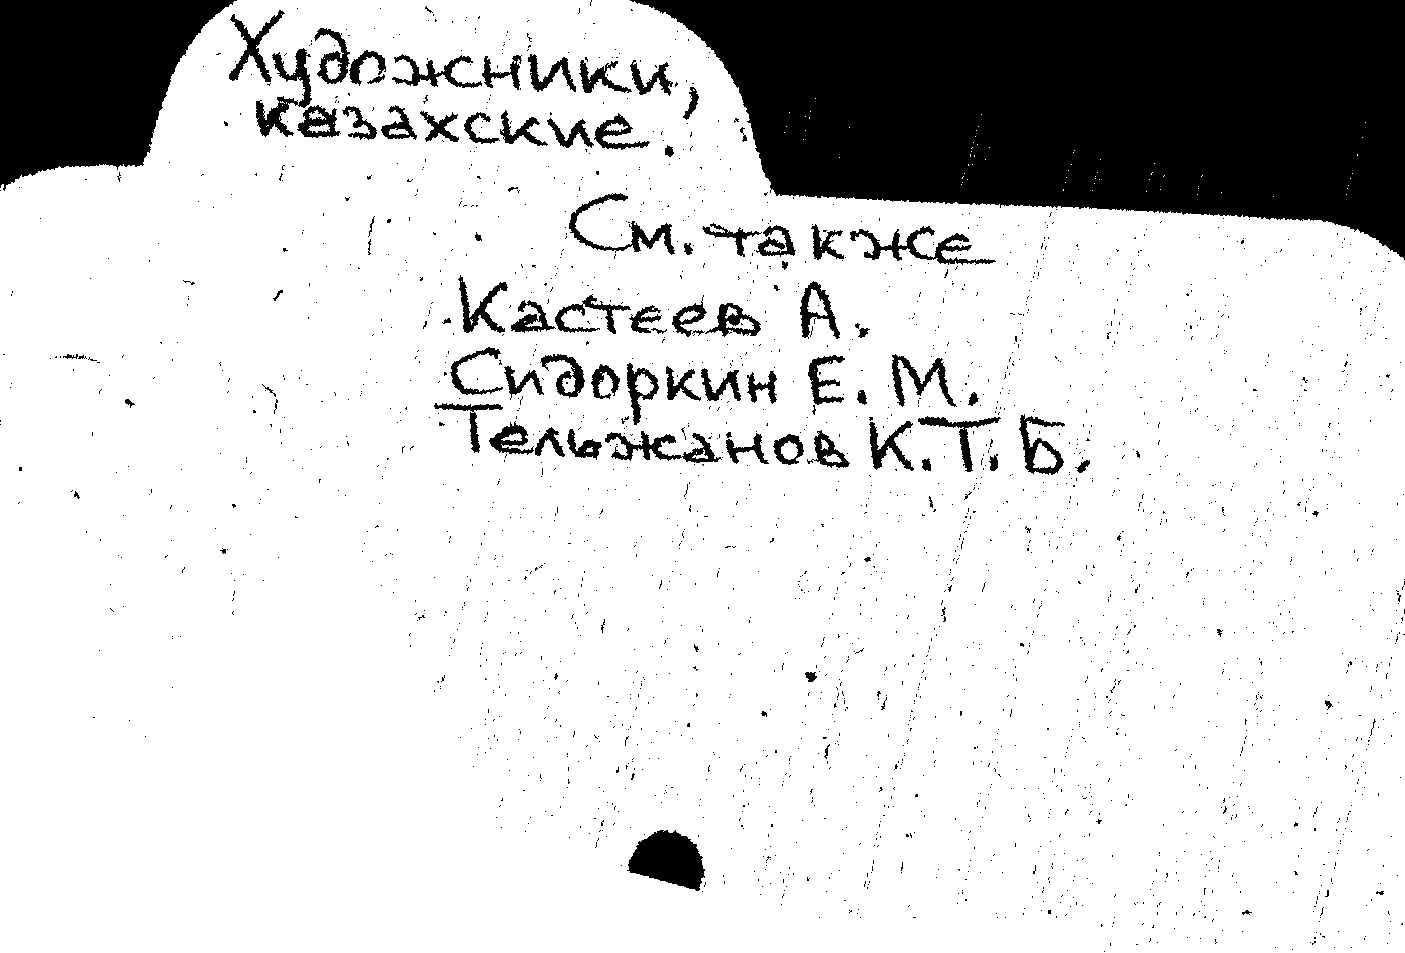 Художники,
казахские.
См. также
Кастеев А.
Сидоркин Е. М.
Тельжанов К. Т. Б.